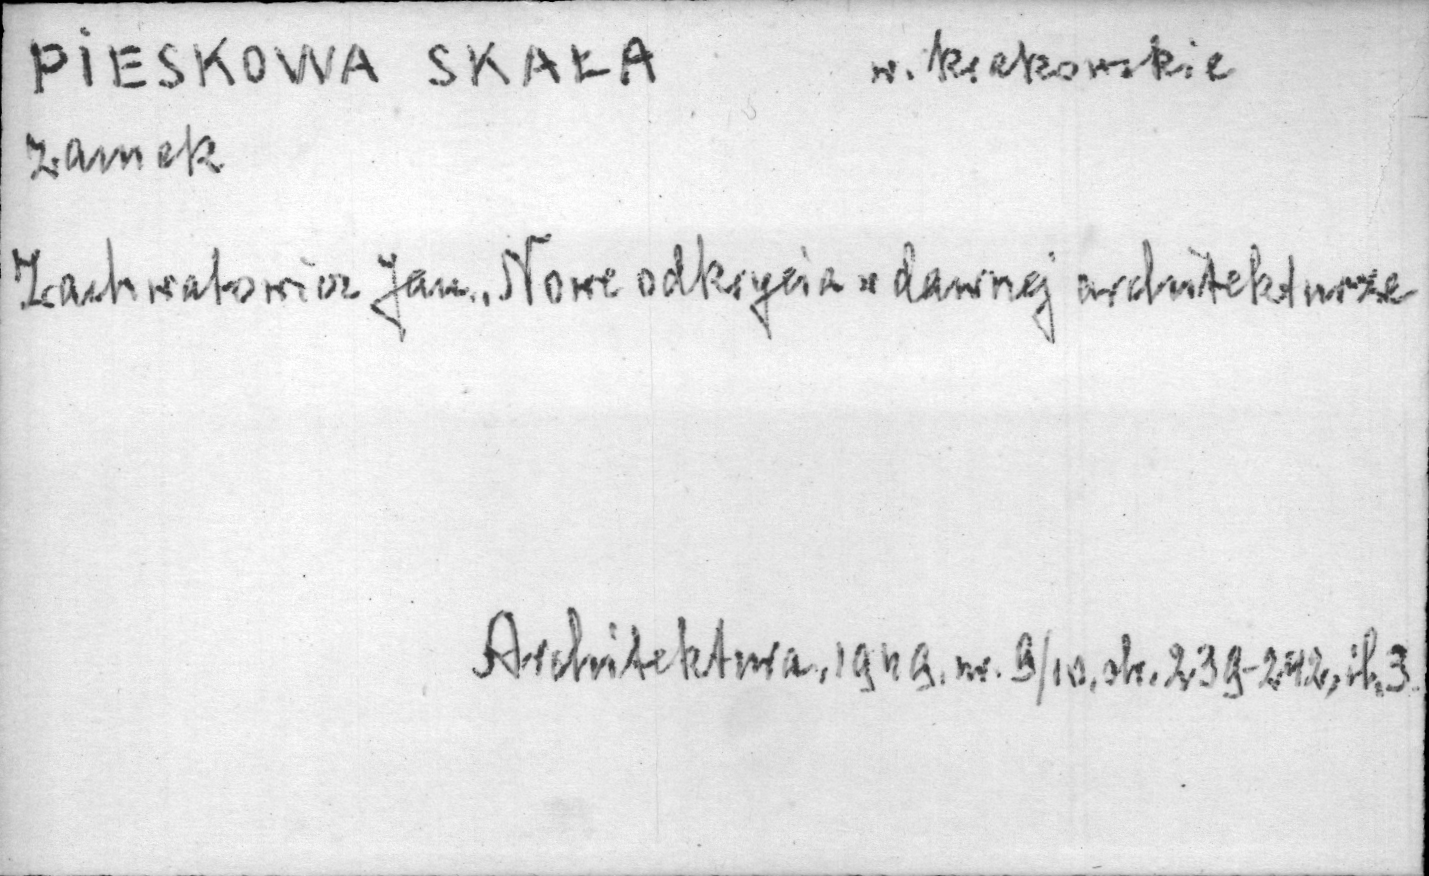 PIESKOWA SKAŁA w. krakowskie
zamek
Zachwatowicz Jan., Nowe odkrycia w dawnej architekturze
Architektura, 1949. nr. 9/10, str. 239-242, il. 3.